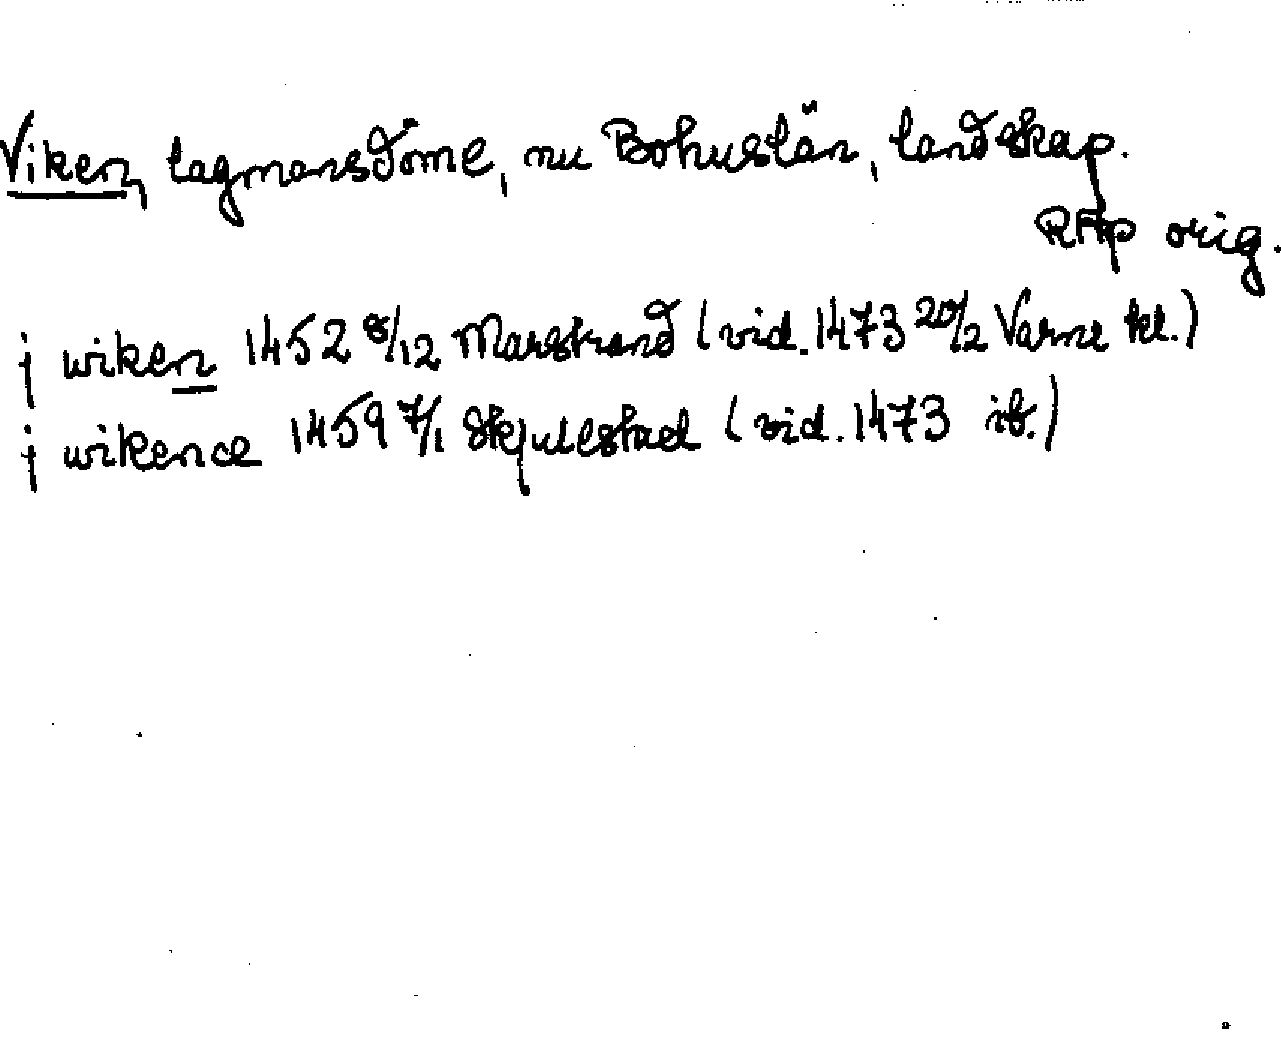 Viken, lagmansdöme, nu Bohuslän, landskap.
RAp orig.
j wiken 1452 8/12 Marstrand (vid. 1473 20/2 Varne kl.)
j wikence 1459 7/1 Skjulestad (vid. 1473 ib.)